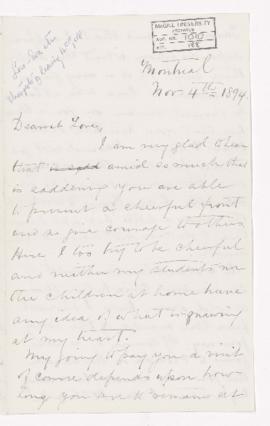 McGILL UNIVERSITY
ARCHIVES
ACC. NO.
REF.
Montreal
Nov 4th 1894.
Dearest Love,
I am very glad to hear
that is sad amid so much that
is saddening you are able
to present a cheerful front
and so give courage to others
Here I too try to be cheerful
and neither my students nor
the children at home have
any idea of what is gnawing
at my heart.
My going to pay you a visit
of course depends upon how
long you are to remain at